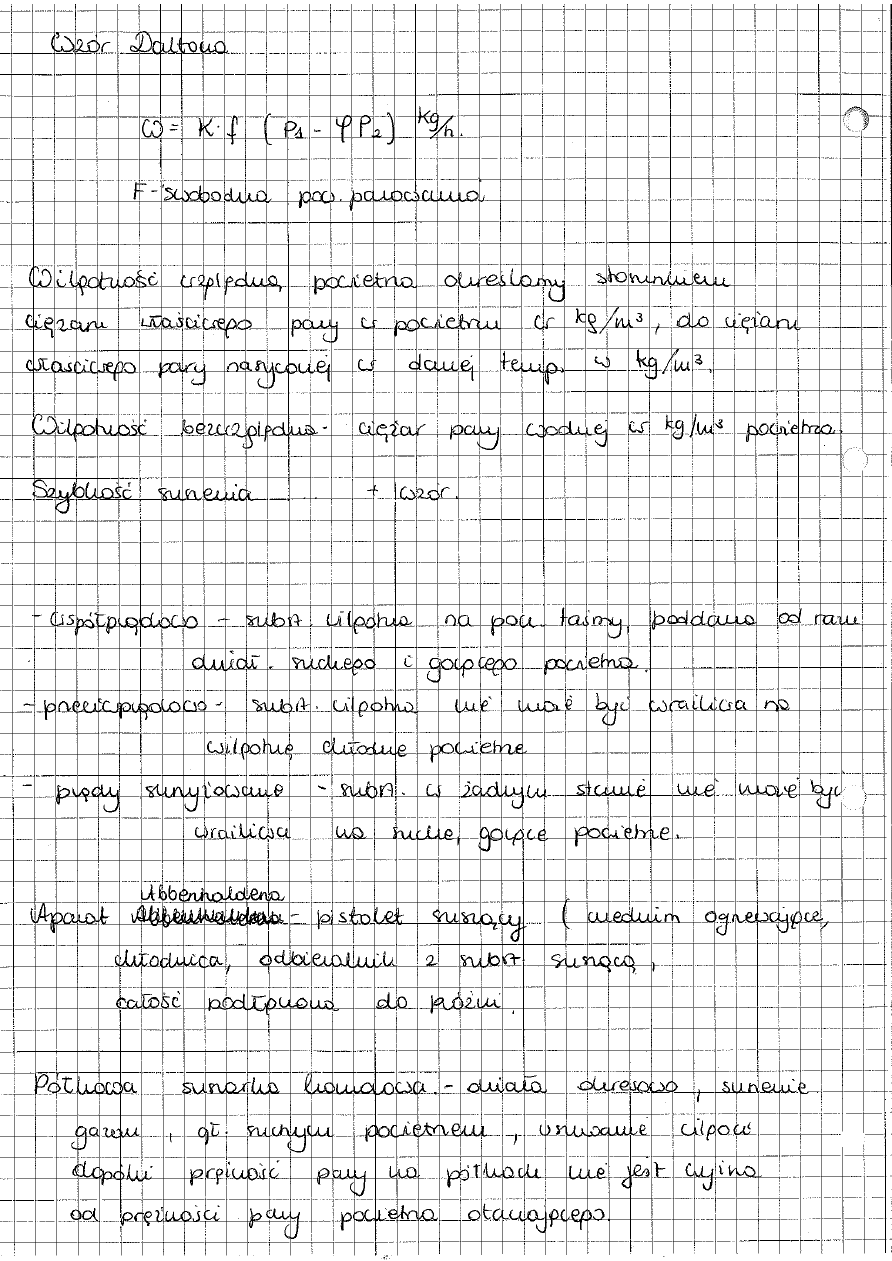 Wzór Daltona
ω = K·f (P₁ - φP₂) kg/h.
F - swobodna pow. parowania
Wilgotność względną powietrza określamy stosunkiem
ciężaru właściwego pary w powietrzu w kg/m³, do ciężaru
właściwego pary nasyconej w danej temp. w kg/m³.
Wilgotność bezwzględna - ciężar pary wodnej w kg/m³ powietrza.
Szybkość suszenia + wzór.
- współprądowo - subst. wilgotna na pow. taśmy, poddana od razu
dział. suchego i gorącego powietrza.
- przeciwprądowo - subst. wilgotna nie może być wrażliwa na
wilgotne chłodne powietrze
- prądy skrzyżowane - subst. w żadnym stanie nie może być
wrażliwa na suche, gorące powietrze.
Abbenhaldena
Aparat - pistolet suszący ( medium ogrzewające,
chłodnica, odbieralnik z subst suszącą,
całość podłączona do próżni.
Półkowa suszarka komorowa - działa okresowo, suszenie
gazem, gł. suchym powietrzem, usuwanie wilgoci
dopóki prężność pary na półkach nie jest wyższa
od prężności pary powietrza otaczającego.